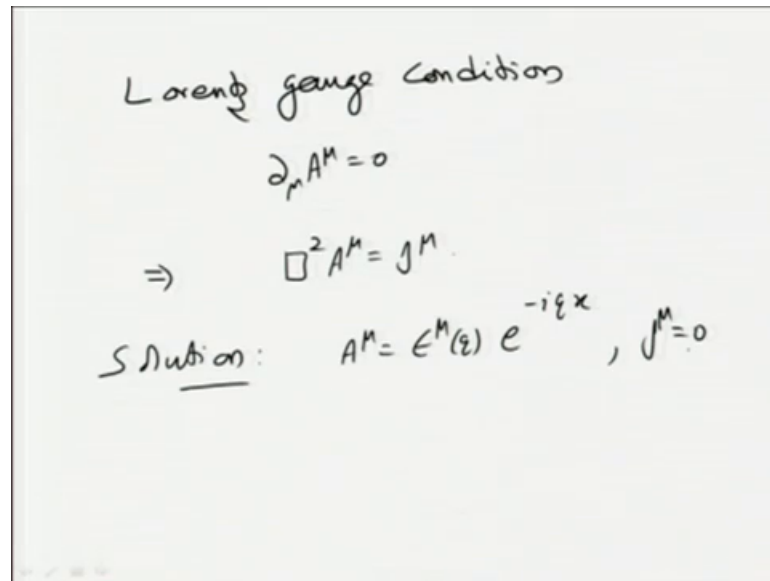 Lorentz gauge condition
∂_μ A^μ = 0
⇒ □² A^μ = J^μ.
Solution: A^μ = ε^μ(q) e^{-iqx}, J^μ = 0